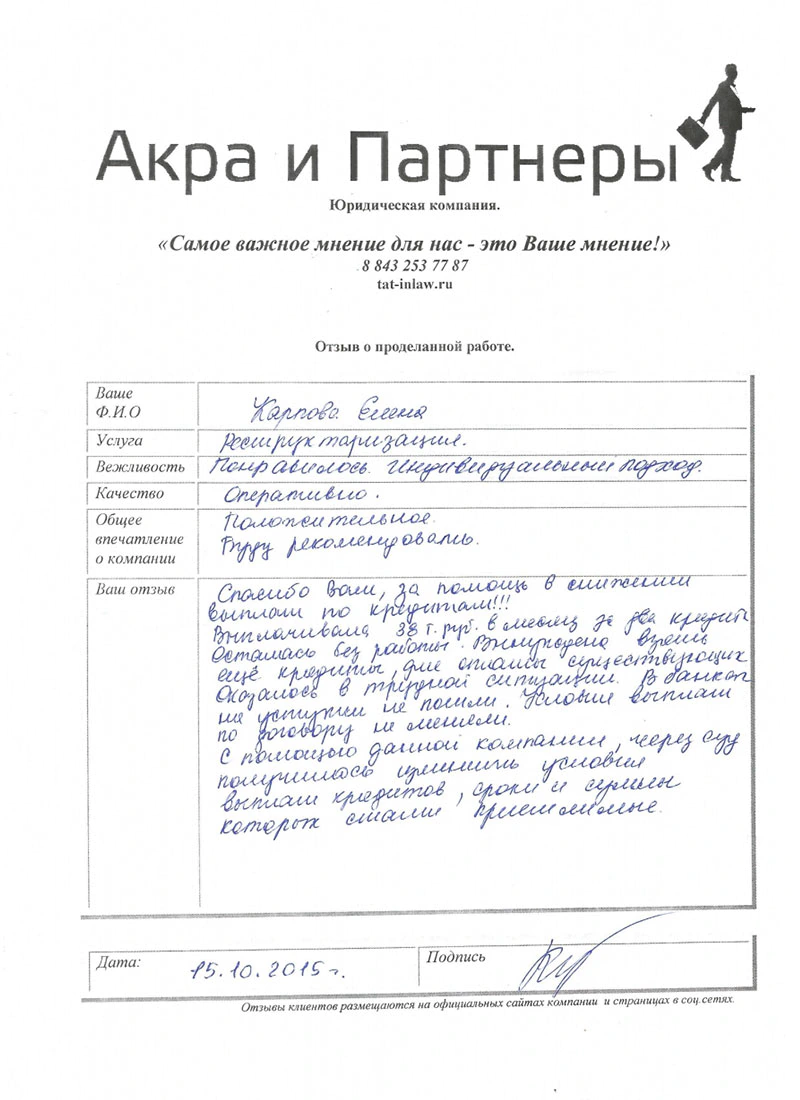 Акра и Партнеры
Юридическая компания.
«Самое важное мнение для нас - это Ваше мнение!»
8 843 253 77 87
tat-inlaw.ru
Отзыв о проделанной работе.
Ваше
Ф.И.О
Карпова Елена
Услуга
Реструктаризация.
Вежливость
Понравилось. Индивидуальный подход.
Качество
Оперативно.
Общее
впечатление
о компании
Положительное.
Буду рекомендовать.
Ваш отзыв
Спасибо Вам, за помощь в снижении
выплат по кредитам!!!
Выплачивала 38 т. руб. в месяц за два кредита
Осталась без работы. Вынуждена взять
ещё кредиты, для оплаты существующих
Оказалось в трудной ситуации. В банках
на уступки не пошли. Условия выплат
по договору не меняли.
С помощью данной компании, через суд
получилось изменить условия
выплат кредитов, сроки и суммы
которых стали приемлемые.
Дата:
15.10.2015 г.
Подпись
Отзывы клиентов размещаются на официальных сайтах компании и страницах в соц.сетях.